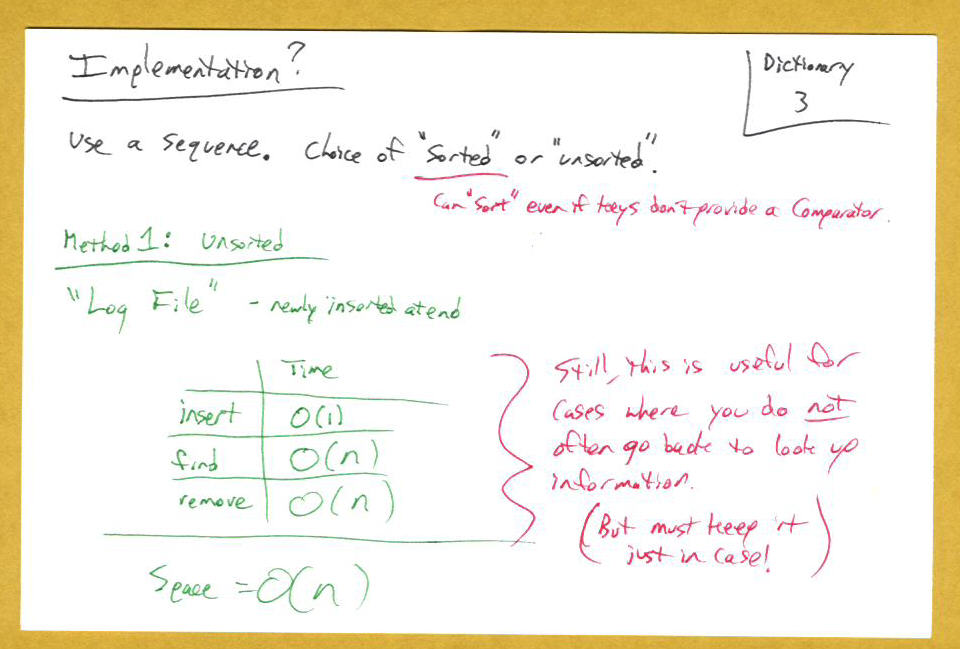 Implementation?
Dictionary
3
Use a sequence. Choice of "sorted" or "unsorted".
Can "sort" even if keys don't provide a Comparator.
Method 1: Unsorted
"Log File" - newly inserted at end
Time
insert O(1)
find O(n)
remove O(n)
Space = O(n)
Still, this is useful for
cases where you do not
often go back to look up
information.
(But must keep it
just in case!)